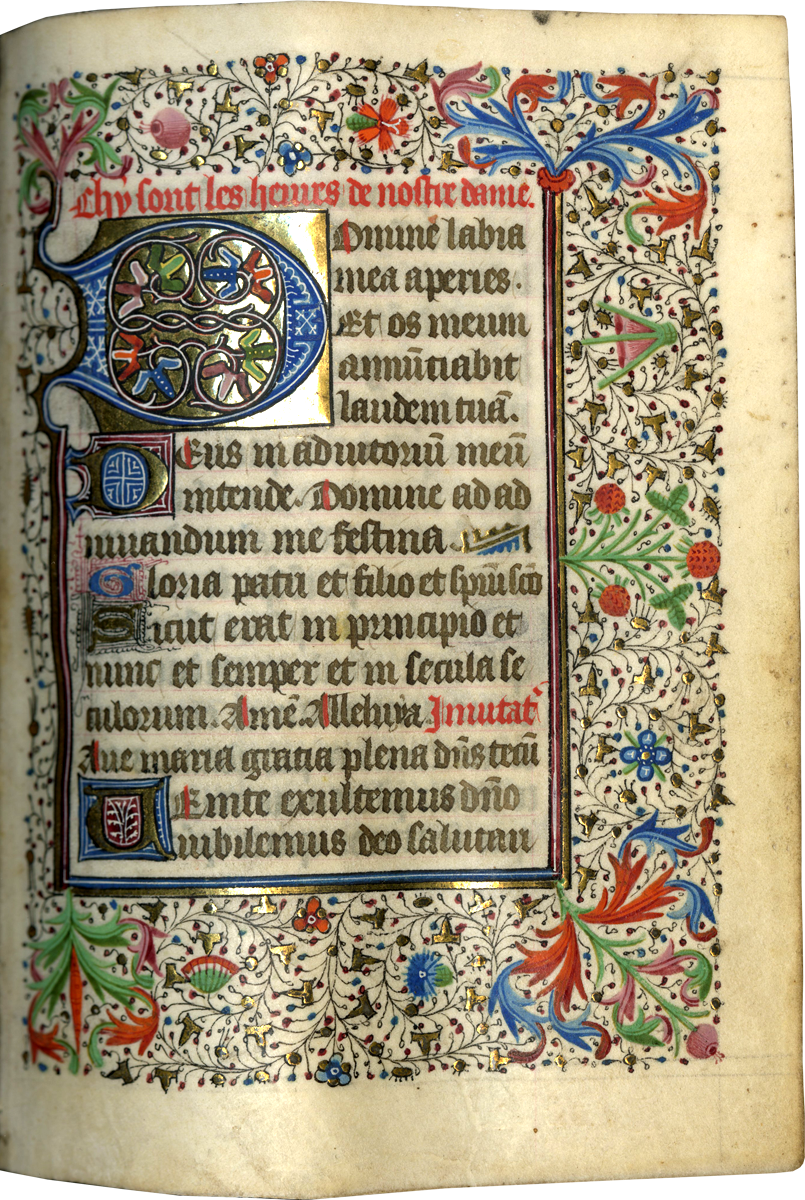 Chy sont les heures de nostre dame.
Domine labia
mea aperies.
Et os meum
annūciabit
laudem tuā.
Deus in adiutoriū meū
intende. Domine ad ad
iuuandum me festina
Gloria patri et filio et spiriui sctō
Sicut erat in principio et
nunc et semper et in secula se
culorum. Amē. Alleluya. Inuitat᷒
Aue maria gratia plena dn̄s tecū
Uenite exultemus dn̄o
iubilemus deo salutari